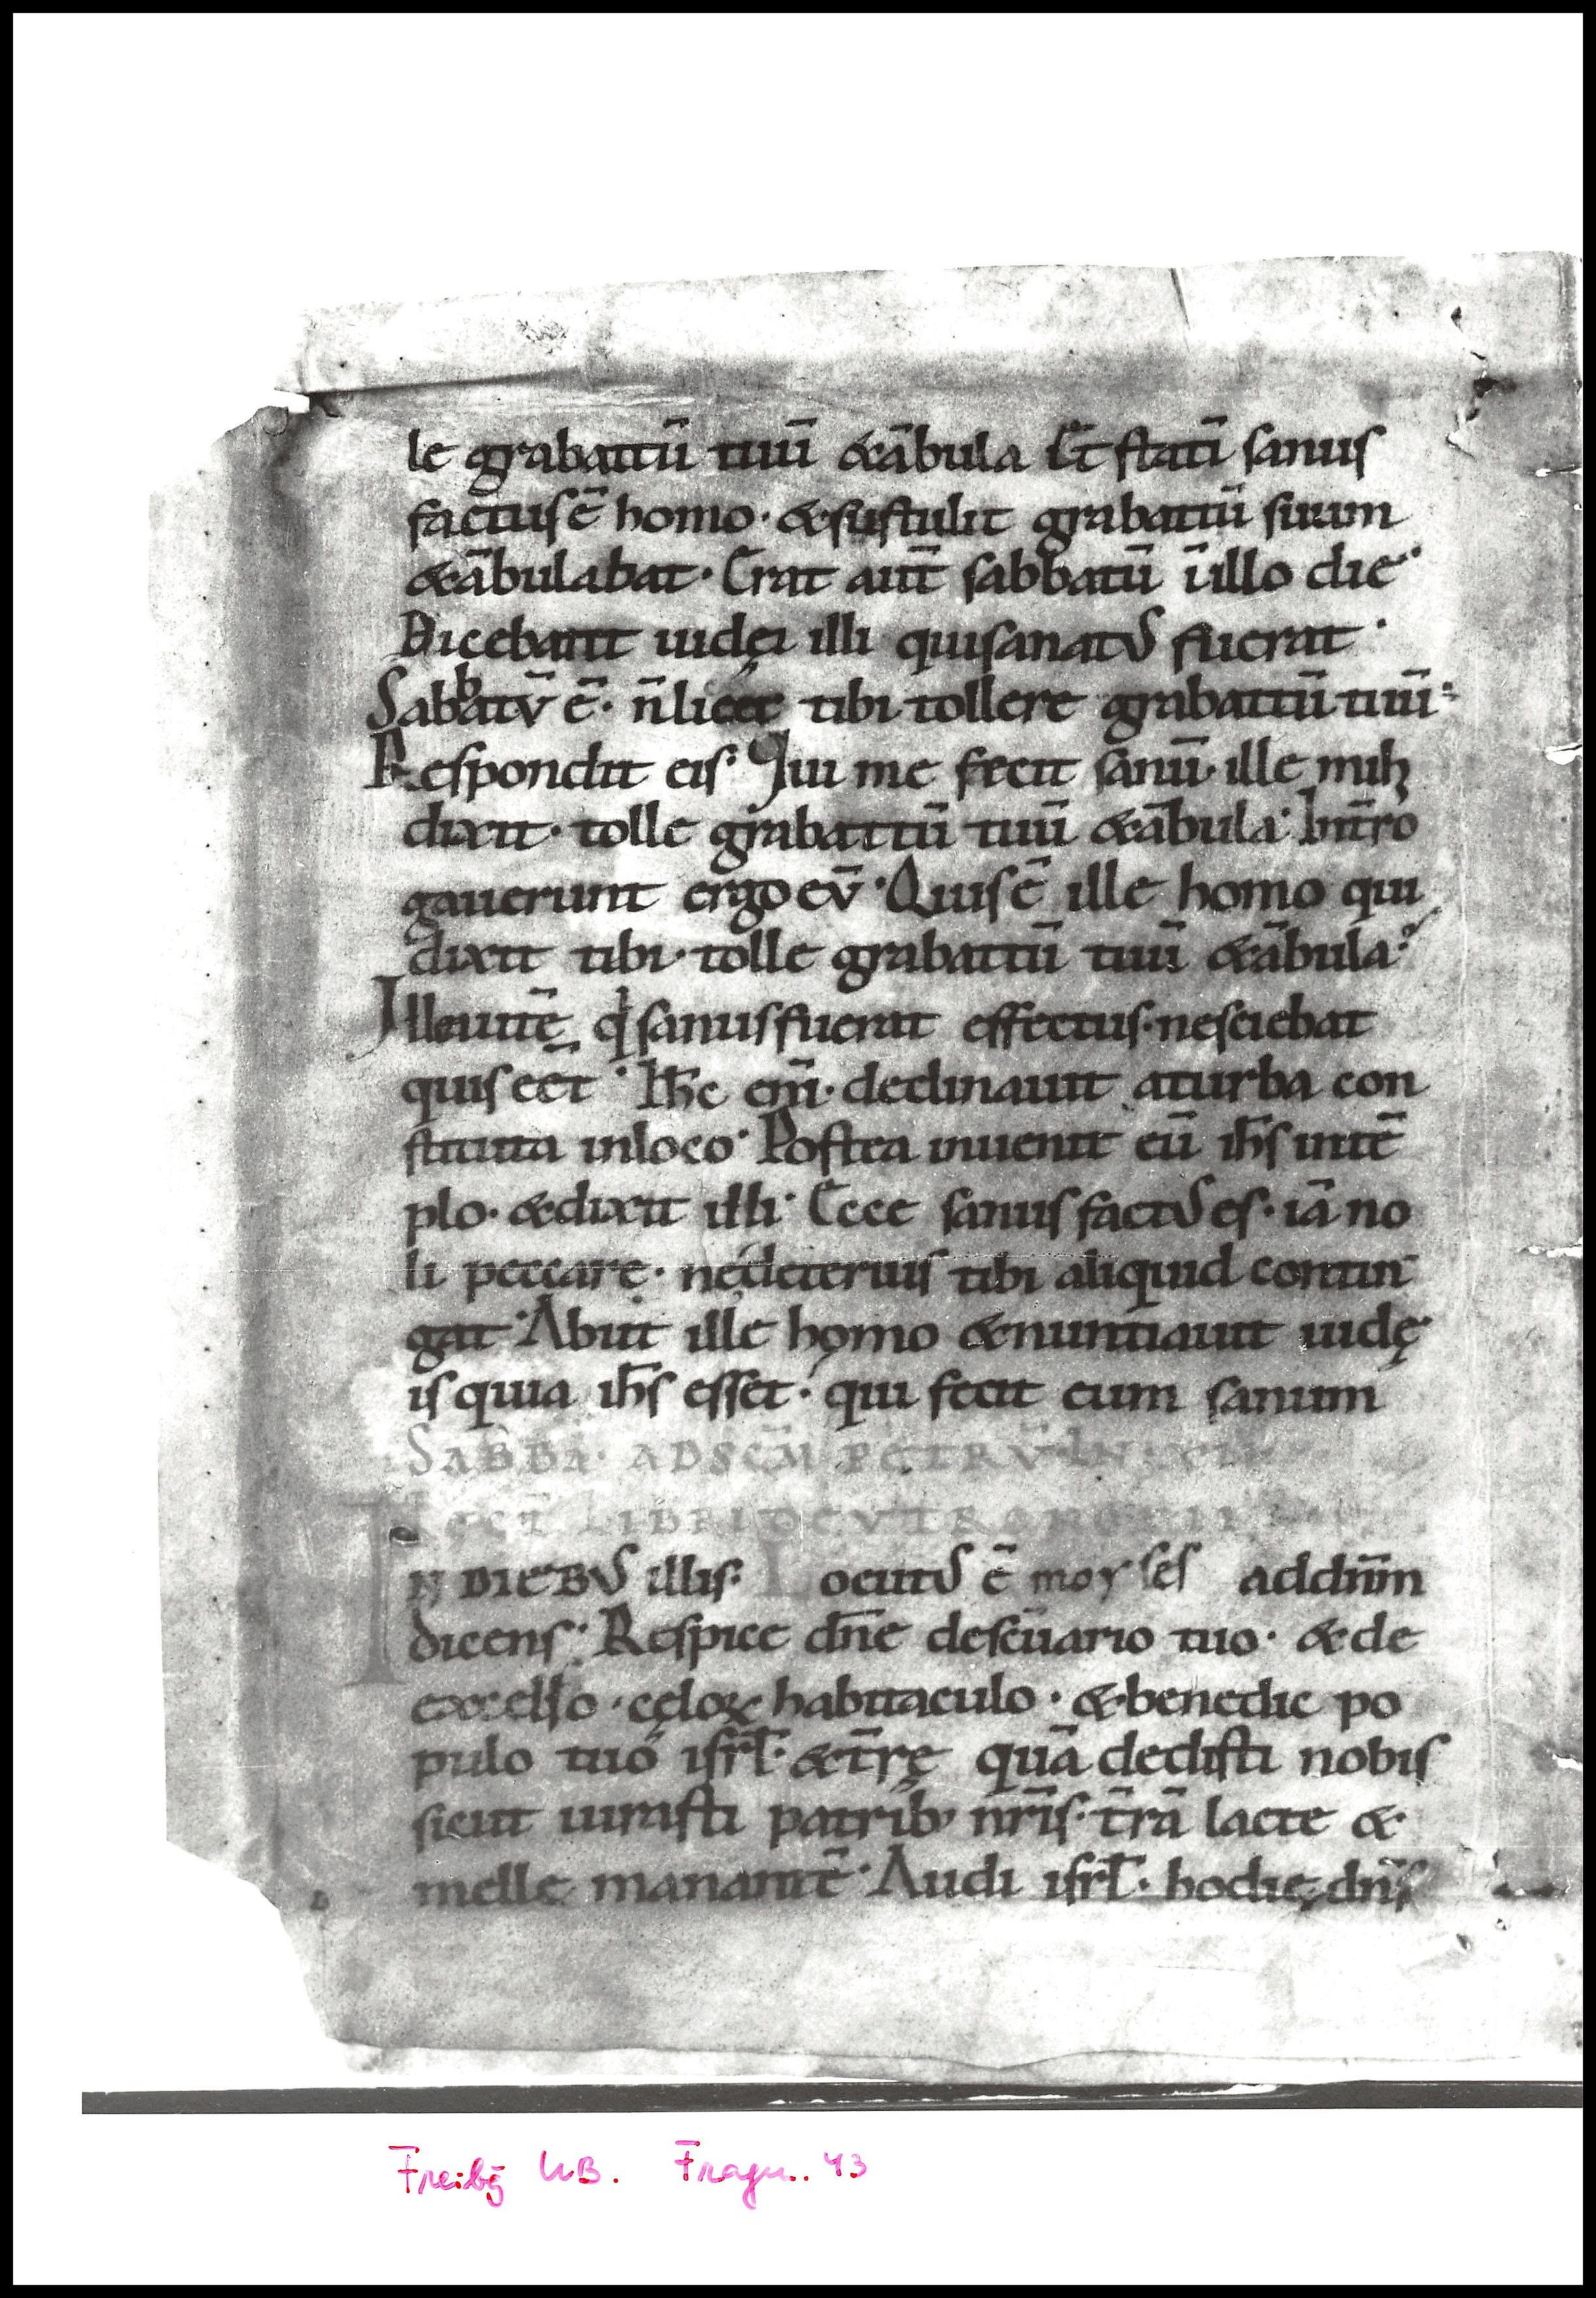 le grabattū tuū &ābula Et statī sanus
factus ē homo· & sustulit grabattū suum
&ābulabat· Erat aut̄ sabbatū ī illo die·
Dicebant iudęi illi qui sanatus fuerat·
Sabbatū ē· n̄ licet tibi tollere grabattū tuū·
Respondit eis· Qui me fecit sanū· ille mihi
dixit· tolle grabattū tuū &ābula· Int̄ro
gauerunt ergo eū· Quis ē ille homo qui
dixit tibi· tolle grabattū tuū &ābula·
Ille autē qi sanus fuerat effectus· nesciebat
quis eēt· Ih̄c eni̅· declinauit a turba con
stituta in loco· Postea inuenit eū ih̄s in tē
plo· & dixit illi· Ecce sanus factus es· iā no
li peccare· ne deterius tibi aliquid contin
gat· Abiit ille homo & nuntiauit iudę
is quia ih̄s esset· qui fecit eum sanum
SABBA· AD SC̄M PETRŪ·
LIBRI
IN DIEBUS illis· Locutus ē moyses ad dn̄m
dicens· Respice dn̄e de sc̄uario tuo· & de
excelso cęloꝝ habitaculo· & benedic po
pulo tuo isrl̄· & t̄rę quā dedisti nobis
sicut iurasti patrib; nr̄is· t̄rā lacte &
melle manantē· Audi isrl̄· hodie dn̄s
Freibg UB. Fragm. 43